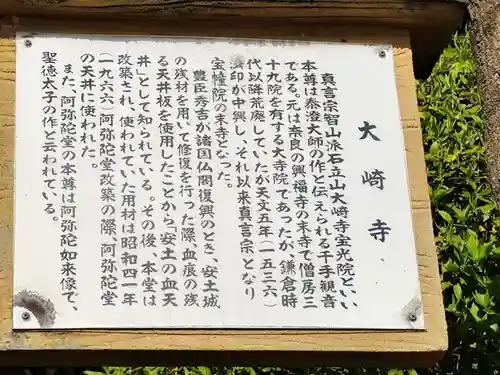 大崎寺
真言宗智山派石立山大崎寺宝光院といい
本尊は泰澄大師の作と伝えられる千手観音
である。元は奈良の興福寺の末寺で僧房三
十九院を有する大寺院であったが、鎌倉時
代以降荒廃していたが天文五年(一五三六)
済印が中興し、それ以来真言宗となり
宝幢院の末寺となった。
豊臣秀吉が諸国仏閣復興のとき、安土城
の残材を用いて修復を行った際、血痕の残
る天井板を使用したことから「安土の血天
井」として知られている。その後、本堂は
改築され、使われていた用材は昭和四一年
(一九六六)阿弥陀堂改築の際、阿弥陀堂
の天井に使われた。
また、阿弥陀堂の本尊は阿弥陀如来像で、
聖徳太子の作と云われている。